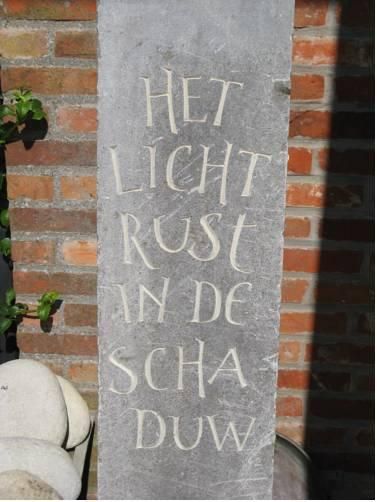 HET
LICHT
RUST
IN DE
SCHA
DUW